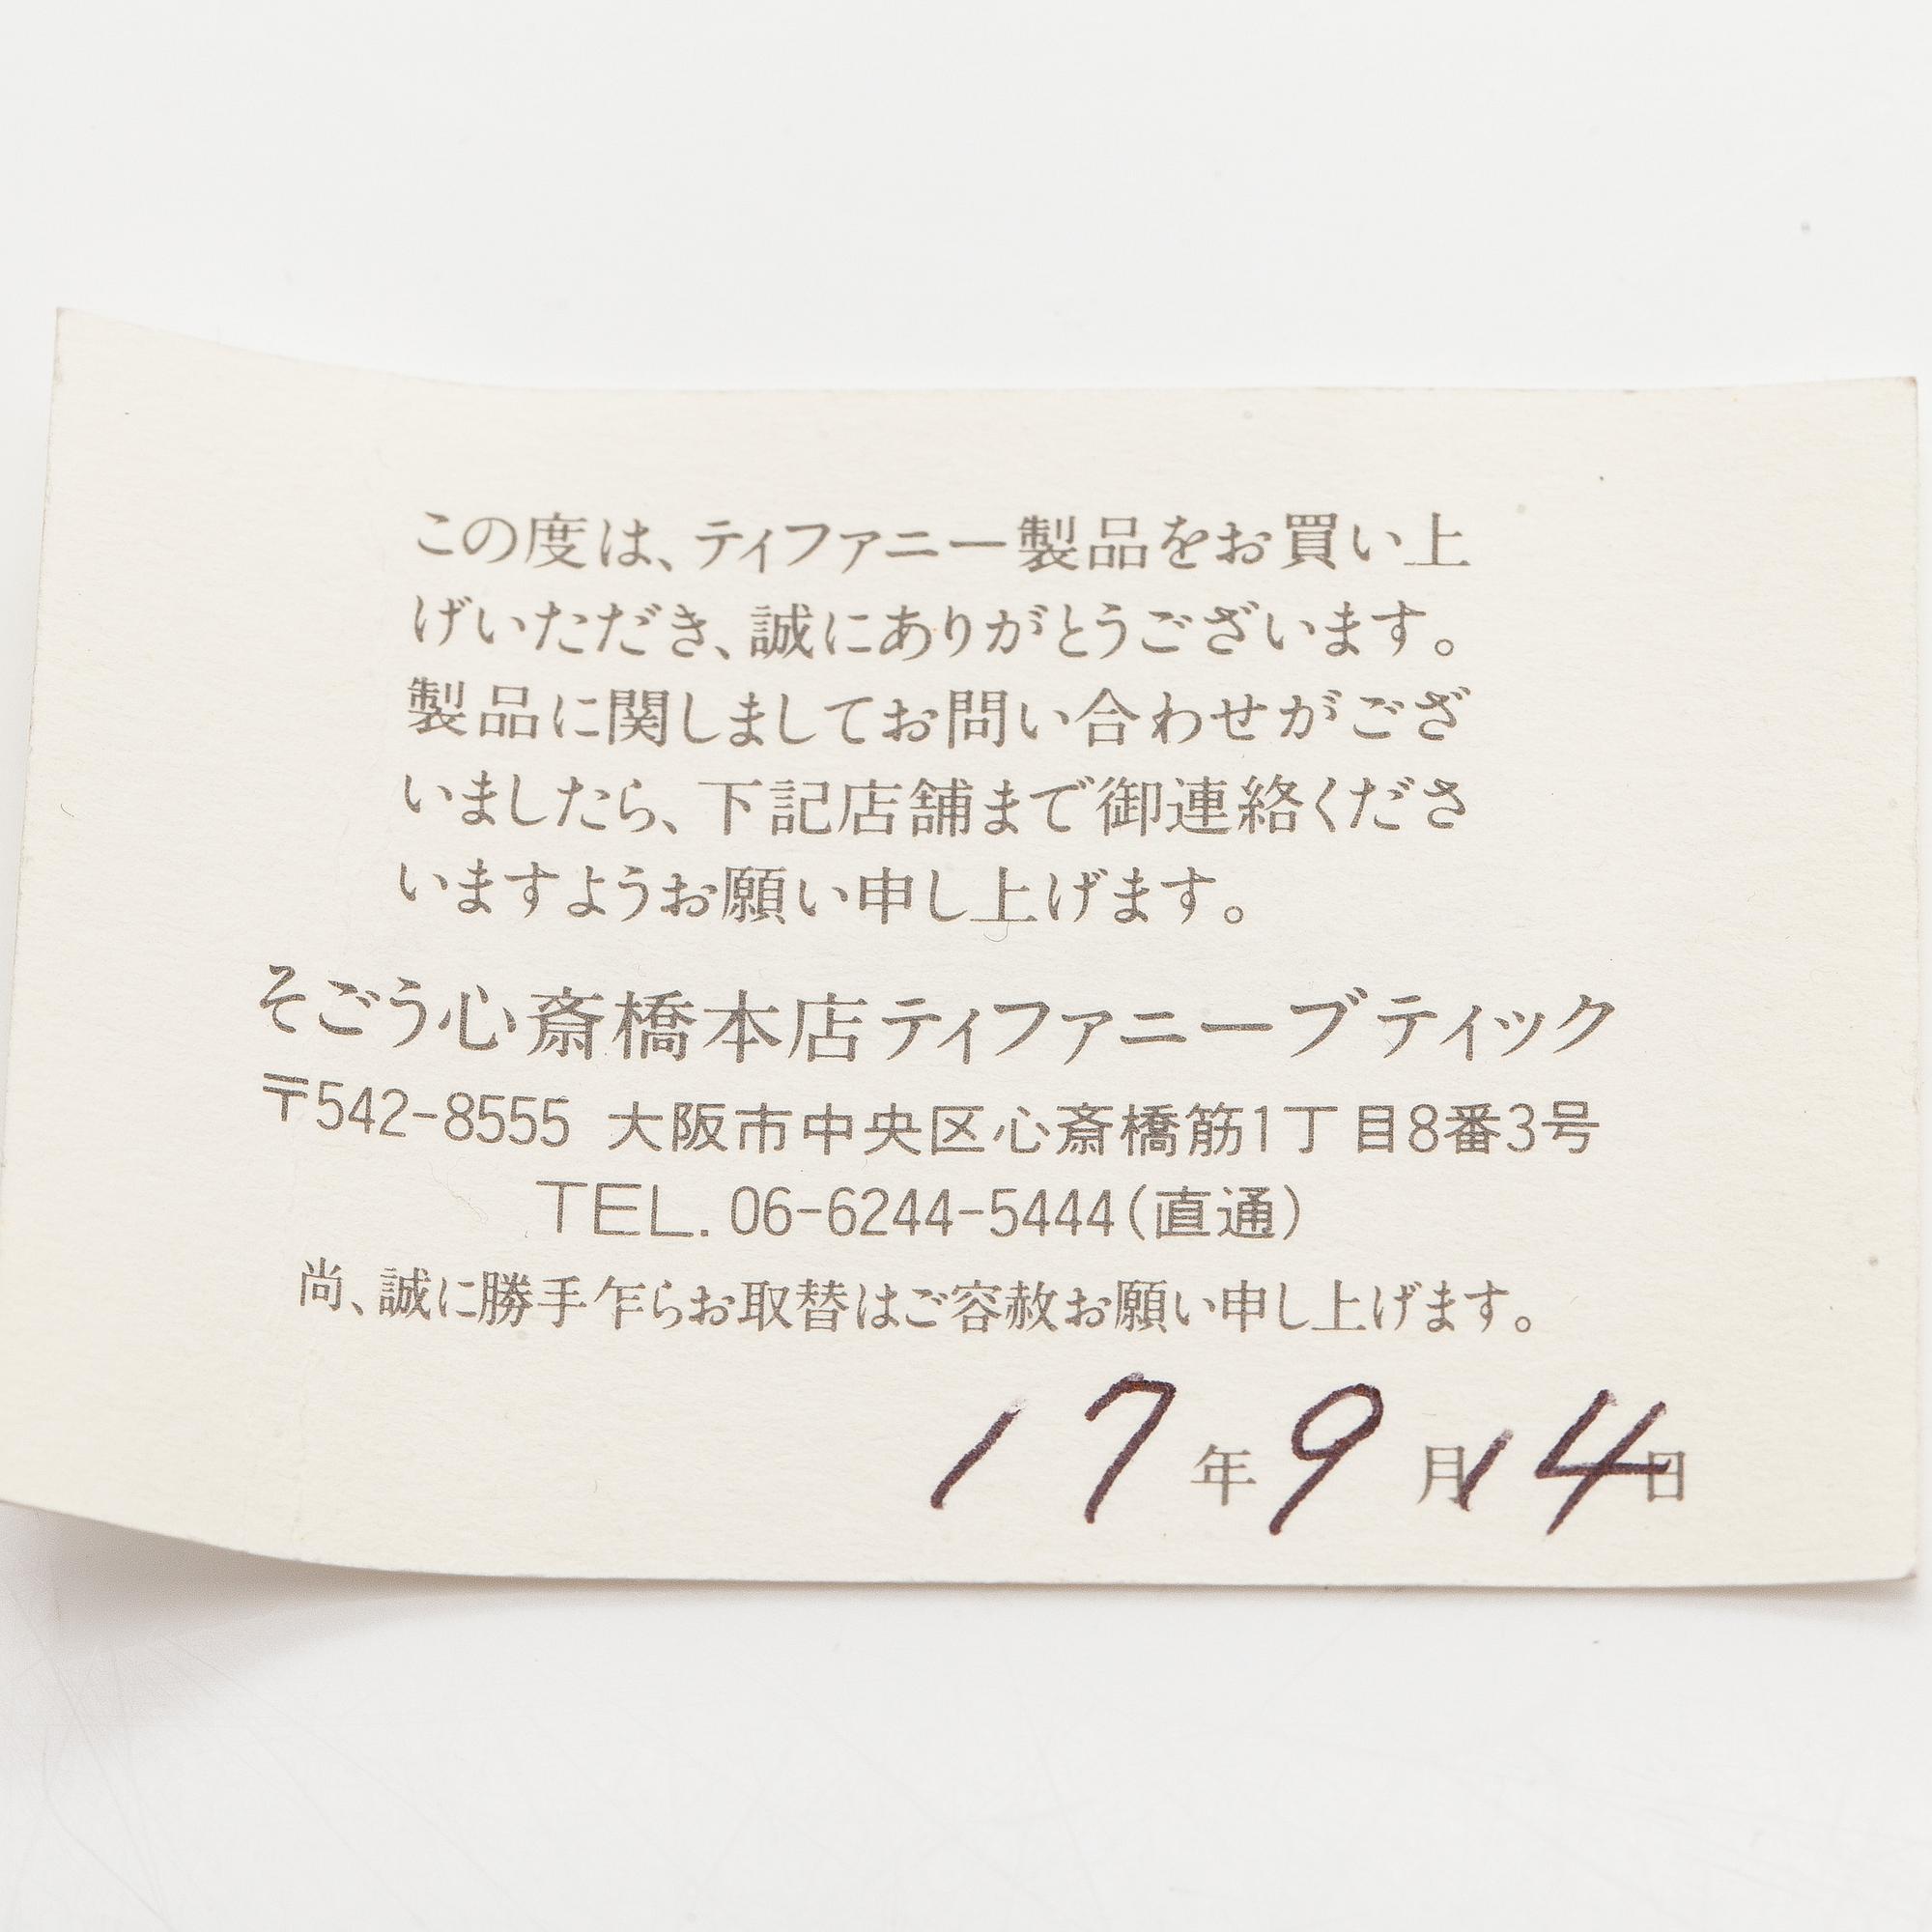 この度は、ティファニー製品をお買い上
げいただき、誠にありがとうございます。
製品に関しましてお問い合わせがござ
いましたら、下記店舗まで御連絡くださ
いますようお願い申し上げます。
そごう心斎橋本店ティファニーブティック
〒542-8555 大阪市中央区心斎橋筋1丁目8番3号
TEL. 06-6244-5444(直通)
尚、誠に勝手乍らお取替はご容赦お願い申し上げます。
17年9月14日